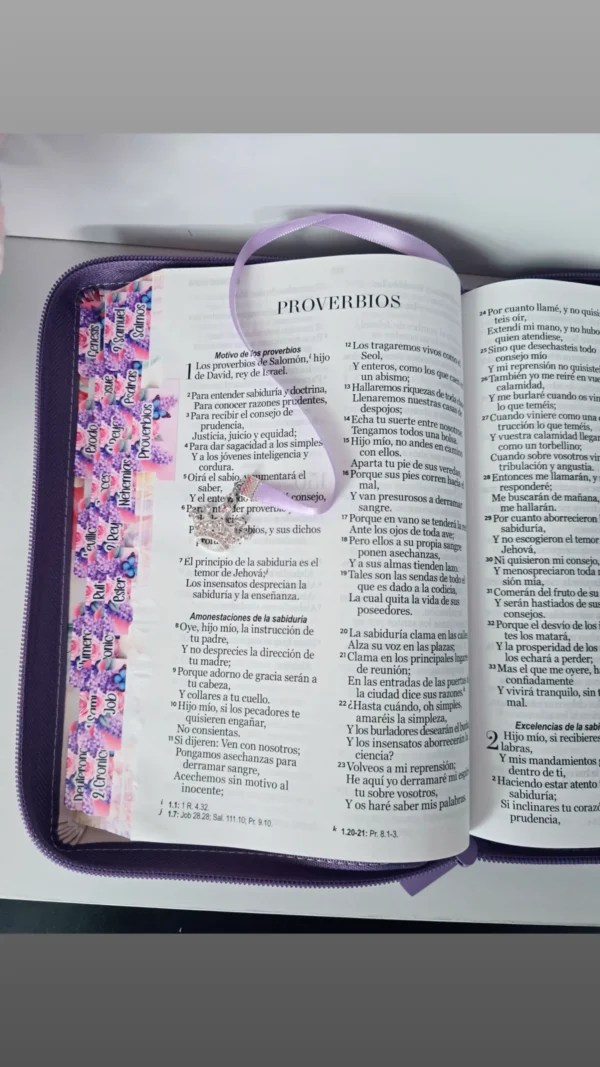 PROVERBIOS
Motivo de los proverbios
1 Los proverbios de Salomón,ⁱ hijo
de David, rey de Israel.
2 Para entender sabiduría y doctrina,
Para conocer razones prudentes,
3 Para recibir el consejo de
prudencia,
Justicia, juicio y equidad;
4 Para dar sagacidad a los simples
Y a los jóvenes inteligencia y
cordura.
5 Oirá el sabio, aumentará el
saber,
Y el consejo,
6
sabios, y sus dichos
7 El principio de la sabiduría es el
temor de Jehová;ʲ
Los insensatos desprecian la
sabiduría y la enseñanza.
Amonestaciones de la sabiduría
8 Oye, hijo mío, la instrucción de
tu padre,
Y no desprecies la dirección de
tu madre;
9 Porque adorno de gracia serán a
tu cabeza,
Y collares a tu cuello.
10 Hijo mío, si los pecadores te
quisieren engañar,
No consientas.
11 Si dijeren: Ven con nosotros;
Pongamos asechanzas para
derramar sangre,
Acechemos sin motivo al
inocente;
i 1.1: 1 R. 4.32.
j 1.7: Job 28.28; Sal. 111.10; Pr. 9.10.
12 Los tragaremos vivos como
Seol,
Y enteros, como los que
un abismo;
13 Hallaremos riquezas de toda
Llenaremos nuestras casas de
despojos;
14 Echa tu suerte entre nosotros
Tengamos todos una bolsa.
15 Hijo mío, no andes en camino
con ellos.
Aparta tu pie de sus veredas
16 Porque sus pies corren hacia
mal,
Y van presurosos a derramar
sangre.
17 Porque en vano se tenderá la
Ante los ojos de toda ave;
18 Pero ellos a su propia sangre
ponen asechanzas,
Y a sus almas tienden lazo.
19 Tales son las sendas de todo el
que es dado a la codicia,
La cual quita la vida de sus
poseedores.
20 La sabiduría clama en las calles
Alza su voz en las plazas;
21 Clama en los principales lugares
de reunión;
En las entradas de las puertas
la ciudad dice sus razones.ᵏ
22 ¿Hasta cuándo, oh simples,
amaréis la simpleza,
Y los burladores desearán el
Y los insensatos aborrecerán
ciencia?
23 Volveos a mi reprensión;
He aquí yo derramaré mi
tu sobre vosotros,
Y os haré saber mis palabras
k 1.20-21: Pr. 8.1-3.
24 Por cuanto llamé, y no
teis oír,
Extendí mi mano, y no hubo
quien atendiese,
25 Sino que desechasteis todo
consejo mío
Y mi reprensión no
26 También yo me reiré en
calamidad,
Y me burlaré cuando os
lo que teméis;
27 Cuando viniere como una
trucción lo que teméis,
Y vuestra calamidad
como un torbellino;
Cuando sobre vosotros
tribulación y angustia.
28 Entonces me llamarán, y
responderé;
Me buscarán de mañana,
me hallarán.
29 Por cuanto aborrecieron
sabiduría,
Y no escogieron el temor
Jehová,
30 Ni quisieron mi consejo,
Y menospreciaron toda
sión mía,
31 Comerán del fruto de su
Y serán hastiados de sus
consejos.
32 Porque el desvío de los
tes los matará,
Y la prosperidad de los
los echará a perder;
33 Mas el que me oyere,
confiadamente
Y vivirá tranquilo, sin
mal.
Excelencias de la
2 Hijo mío, si recibieres
labras,
Y mis mandamientos
dentro de ti,
2 Haciendo estar atento
sabiduría;
Si inclinares tu
prudencia,
Génesis
2 Samuel
Salmos
Éxodo
Proverbios
Nehemías
2 Reyes
Rut
Ester
Job
Deuteronomio
2 Crónicas